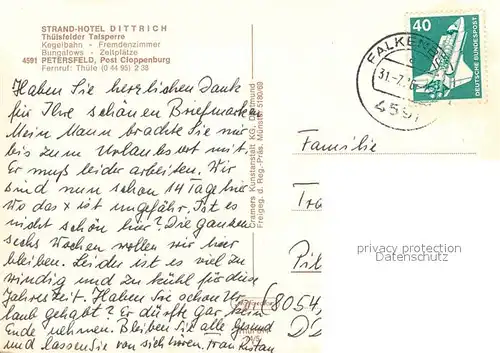 STRAND-HOTEL DITTRICH
Thülsfelder Talsperre
Kegelbahn - Fremdenzimmer
Bungalows - Zeltplätze
4591 PETERSFELD, Post Cloppenburg
Fernruf: Thüle (0 44 95) 2 38
Haben Sie herzlichen Dank
für Ihre schönen Briefmarken
Mein Mann brachte sie mir
bis zum Urlaubsort mit.
Er muß leider arbeiten. Wir
sind nun schon 14 Tage hier
wo das x ist ungefähr. Ist es
nicht schön hier? Die ganzen
sechs Wochen wollen wir hier
bleiben. Leider ist es viel zu
windig und zu kühl für diese
Jahreszeit. Haben Sie schon Ur-
laub gehabt? Er dürfte gar kein
Ende nehmen. Bleiben Sie alle gesund
und lassen Sie von sich hören. Frau
Cramers Kunstanstalt KG, Dortmund
Freigeg. d. Reg.-Präs. Münster 5180/69
40
DEUTSCHE BUNDESPOST
31.-7.
4591
Familie
privacy protection
Datenschutz
(8054,